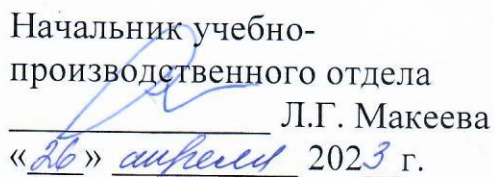 Начальник учебно-
производственного отдела
______________ Л.Г. Макеева
«26» апреля 2023 г.